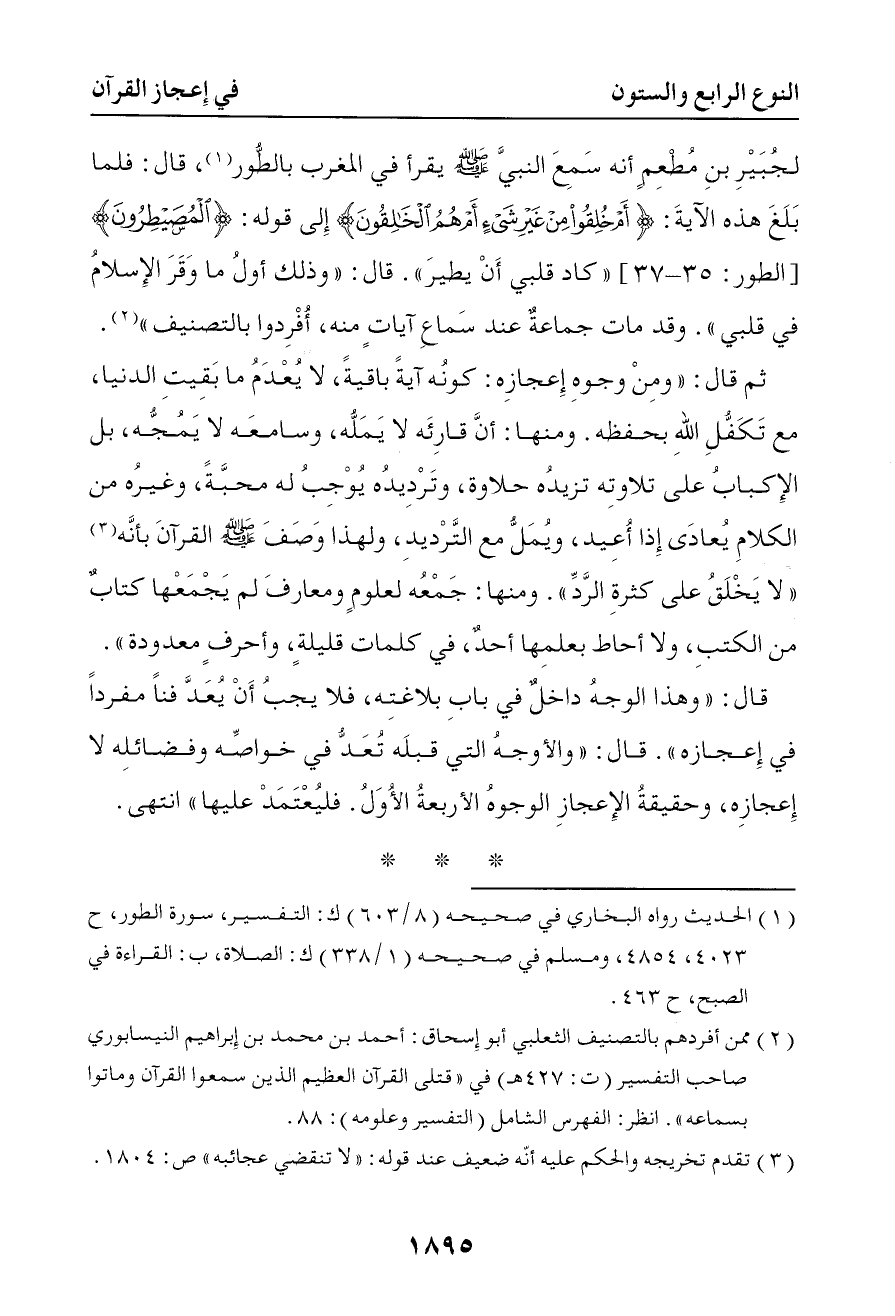 النوع الرابع والستون
في إعجاز القرآن
لجُبَيْرِ بنِ مُطْعِمٍ أنه سَمِعَ النبيَّ ﷺ يقرأ في المغرب بالطُّور(١)، قال: فلما
بَلَغَ هذه الآيةَ: ﴿ أَمْ خُلِقُوا۟ مِنْ غَيْرِ شَىْءٍ أَمْ هُمُ ٱلْخَٰلِقُونَ﴾ إلى قوله: ﴿ٱلْمُصَۜيْطِرُونَ﴾
[الطور: ٣٥-٣٧] «كاد قلبي أنْ يطيرَ». قال: «وذلك أولُ ما وَقَرَ الإسلامُ
في قلبي». وقد مات جماعةٌ عند سَماعِ آياتٍ منه، أُفْرِدوا بالتصنيف»(٢).
ثم قال: «ومنْ وجوهِ إعجازِه: كونُه آيةً باقيةً، لا يُعْدَمُ ما بَقيتِ الدنيا،
مع تَكَفُّلِ اللهِ بحفظه. ومنها: أنَّ قارئَه لا يَمَلُّه، وسامعَه لا يَمُجُّه، بل
الإكبابُ على تلاوته تزيدُه حلاوة، وتَرْديدُه يُوْجِبُ له محبَّةً، وغيرُه من
الكلامِ يُعادَى إذا أُعيد، ويُمَلُّ مع التَّرْديد، ولهذا وَصَفَ ﷺ القرآنَ بأنَّه(٣)
«لا يَخْلَقُ على كثرةِ الرَّدِّ». ومنها: جَمْعُه لعلومٍ ومعارفَ لم يَجْمَعْها كتابٌ
من الكتبِ، ولا أحاط بعلمِها أحدٌ، في كلمات قليلةٍ، وأحرفٍ معدودة».
قال: «وهذا الوجهُ داخلٌ في باب بلاغتِه، فلا يجبُ أنْ يُعَدَّ فناً مفرداً
في إعجازه». قال: «والأوجهُ التي قبلَه تُعَدُّ في خواصِّه وفضائلِه لا
إعجازِه، وحقيقةُ الإعجازِ الوجوهُ الأربعةُ الأُوَلُ. فليُعْتَمَدْ عليها» انتهى.
* * *
(١) الحديث رواه البخاري في صحيحه (٨/ ٦٠٣) ك: التفسير، سورة الطور، ح
٤٠٢٣، ٤٨٥٤، ومسلم في صحيحه (١/ ٣٣٨) ك: الصلاة، ب: القراءة في
الصبح، ح ٤٦٣.
(٢) ممن أفردهم بالتصنيف الثعلبي أبو إسحاق: أحمد بن محمد بن إبراهيم النيسابوري
صاحب التفسير (ت: ٤٢٧هـ) في «قتلى القرآن العظيم الذين سمعوا القرآن وماتوا
بسماعه». انظر: الفهرس الشامل (التفسير وعلومه): ٨٨.
(٣) تقدم تخريجه والحكم عليه أنّه ضعيف عند قوله: «لا تنقضي عجائبه» ص: ١٨٠٤.
١٨٩٥